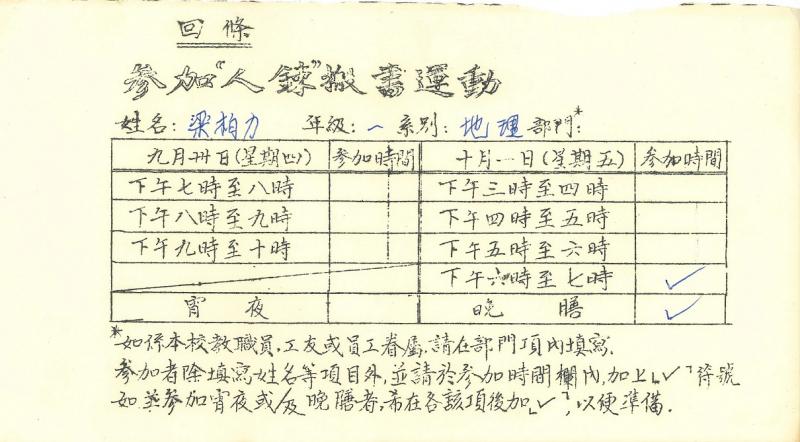 回條
參加“人鍊”搬書運動
姓名: 梁柏力 年級: 一 系別: 地理 部門:*
九月卅日(星期四) 參加時間 十月一日(星期五) 參加時間
下午七時至八時 下午三時至四時
下午八時至九時 下午四時至五時
下午九時至十時 下午五時至六時
下午六時至七時 ✓
宵夜 晚膳 ✓
*如係本校教職員,工友或員工眷屬,請在部門項內填寫.
參加者除填寫姓名等項目外,並請於參加時間欄內,加上「✓」符號
如並參加宵夜或/及晚膳者,希在各該項後加「✓」,以便準備.